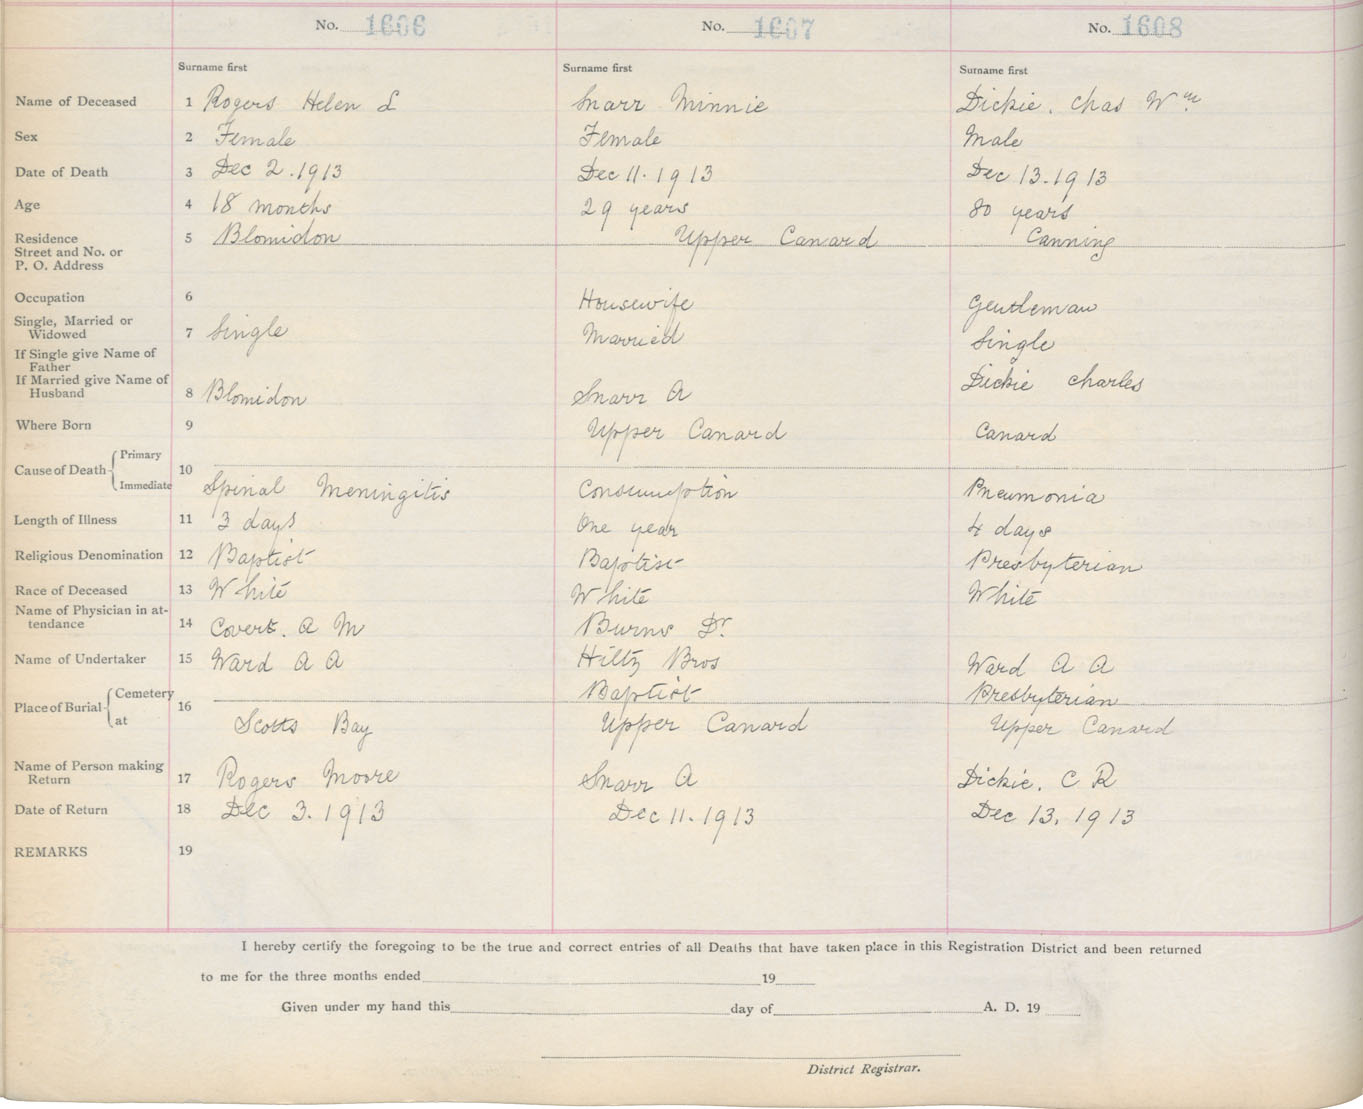 No. 1606 No. 1607 No. 1608
Surname first Surname first Surname first
Name of Deceased 1 Rogers Helen L Snarr Minnie Dickie. Chas Wm.
Sex 2 Female Female Male
Date of Death 3 Dec 2. 1913 Dec 11. 1913 Dec 13. 1913
Age 4 18 months 29 years 80 years
Residence 5 Blomidon Upper Canard Canning
Street and No. or
P. O. Address
Occupation 6 Housewife Gentleman
Single, Married or
Widowed 7 Single Married Single
If Single give Name of
Father
If Married give Name of Dickie Charles
Husband 8 Blomidon Snarr A
Where Born 9 Upper Canard Canard
Cause of Death Primary 10
Immediate Spinal Meningitis Consumption Pneumonia
Length of Illness 11 3 days One year 4 days
Religious Denomination 12 Baptist Baptist Presbyterian
Race of Deceased 13 White White White
Name of Physician in at-
tendance 14 Covert. A M Burns Dr.
Name of Undertaker 15 Ward A A Hiltz Bros Ward A A
Place of Burial Cemetery 16 Baptist Presbyterian
at Scotts Bay Upper Canard Upper Canard
Name of Person making
Return 17 Rogers Moore Snarr A Dickie. C R
Date of Return 18 Dec 3. 1913 Dec 11. 1913 Dec 13. 1913
REMARKS 19
I hereby certify the foregoing to be the true and correct entries of all Deaths that have taken place in this Registration District and been returned
to me for the three months ended 19
Given under my hand this day of A. D. 19
District Registrar.